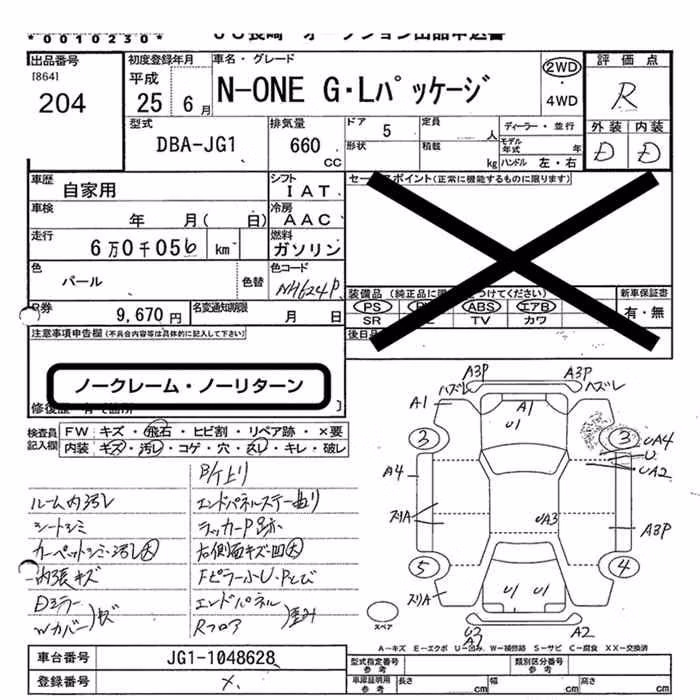 *0010230*
出品番号
[864]
204
初度登録年月
平成
25 6月
車名・グレード
N-ONE G・Lパッケージ
2WD
・
4WD
評価点
R
外装 内装
D D
型式
DBA-JG1
排気量
660
CC
ドア 5
形状
定員 人
積載 kg
ディーラー・並行
モデル年式 年
ハンドル 左・右
車歴
自家用
シフト
IAT
車検
年 月( 日)
冷房
AAC
走行
6万0千056 km
燃料
ガソリン
色
パール
色替
色コード
NH624P
R券
9,670円
名変通知期限
月 日
セールスポイント(正常に機能するものに限ります)
装備品
PS ABS エアB
SR TV カワ
新車保証書
有・無
後日品
注意事項申告欄(不具合内容等は具体的に記入して下さい)
ノークレーム・ノーリターン
修復歴
検査員記入欄
FW キズ・飛石・ヒビ割・リペア跡・×要
内装 キズ・汚レ・コゲ・穴・スレ・キレ・破レ
ルーム内汚レ
シートシミ
カーペットシミ・汚レ大
内張キズ
Dミラー
Wカバー
エンドパネルステー曲り
ラッカーP跡
右側面キズ凹大
Fピラー小U・Pとび
エンドパネル
Rフロア
歪み
A3P A3P
ハズレ ハズレ
A1 A1
U1
3 3
UA4
U
UA2
A4
スリA
UA3
A3P
5 4
スリA
U1 U1
U3
A3
A2
スペア
A−キズ E−エクボ U−凹み W−補修跡 S−サビ C−腐食 XX−交換済
車台番号
JG1-1048628
登録番号
×
型式指定番号
参考
類別区分番号
参考
車庫証明用
参考
長さ cm 幅 cm 高さ cm